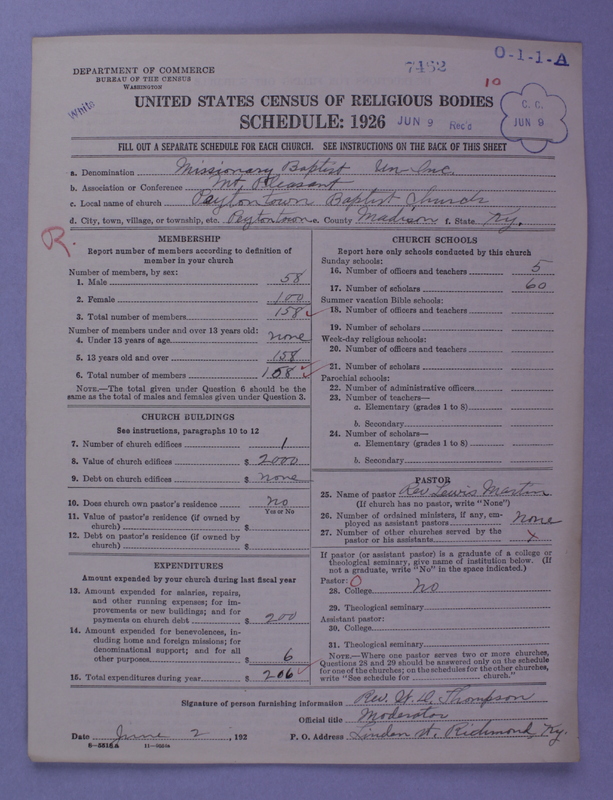 7482
O-1-1-A
DEPARTMENT OF COMMERCE
BUREAU OF THE CENSUS
WASHINGTON
White
10
UNITED STATES CENSUS OF RELIGIOUS BODIES
SCHEDULE: 1926
JUN 9 Rec'd
C. C.
JUN 9
FILL OUT A SEPARATE SCHEDULE FOR EACH CHURCH. SEE INSTRUCTIONS ON THE BACK OF THIS SHEET
a. Denomination Missionary Baptist Un-Inc.
b. Association or Conference Mt. Pleasant
c. Local name of church Peytontown Baptist Church
d. City, town, village, or township, etc. Peytontown e. County Madison f. State Ky.
R.
MEMBERSHIP
Report number of members according to definition of
member in your church
Number of members, by sex:
1. Male 58
2. Female 100
3. Total number of members 158
Number of members under and over 13 years old:
4. Under 13 years of age none
5. 13 years old and over 158
6. Total number of members 158
NOTE.—The total given under Question 6 should be the
same as the total of males and females given under Question 3.
CHURCH BUILDINGS
See instructions, paragraphs 10 to 12
7. Number of church edifices 1
8. Value of church edifices $ 2000
9. Debt on church edifices $ none
10. Does church own pastor's residence no
Yes or No
11. Value of pastor's residence (if owned by
church) $
12. Debt on pastor's residence (if owned by
church) $
EXPENDITURES
Amount expended by your church during last fiscal year
13. Amount expended for salaries, repairs,
and other running expenses; for im-
provements or new buildings; and for
payments on church debt $ 200
14. Amount expended for benevolences, in-
cluding home and foreign missions; for
denominational support; and for all
other purposes $ 6
15. Total expenditures during year $ 206
CHURCH SCHOOLS
Report here only schools conducted by this church
Sunday schools:
16. Number of officers and teachers 5
17. Number of scholars 60
Summer vacation Bible schools:
18. Number of officers and teachers
19. Number of scholars
Week-day religious schools:
20. Number of officers and teachers
21. Number of scholars
Parochial schools:
22. Number of administrative officers
23. Number of teachers—
a. Elementary (grades 1 to 8)
b. Secondary
24. Number of scholars—
a. Elementary (grades 1 to 8)
b. Secondary
PASTOR
25. Name of pastor Rev Lewis Martin
(If church has no pastor, write "None")
26. Number of ordained ministers, if any, em-
ployed as assistant pastors None
27. Number of other churches served by the
pastor or his assistants x
If pastor (or assistant pastor) is a graduate of a college or
theological seminary, give name of institution below. (If
not a graduate, write "No" in the space indicated.)
Pastor: O
28. College No
29. Theological seminary
Assistant pastor:
30. College
31. Theological seminary
NOTE.—Where one pastor serves two or more churches,
Questions 28 and 29 should be answered only on the schedule
for one of the churches; on the schedules for the other churches,
write "See schedule for church."
Signature of person furnishing information Rev. W. D. Thompson
Official title Moderator
Date June 2, 192 P. O. Address Linden st, Richmond, Ky.
8—5515A